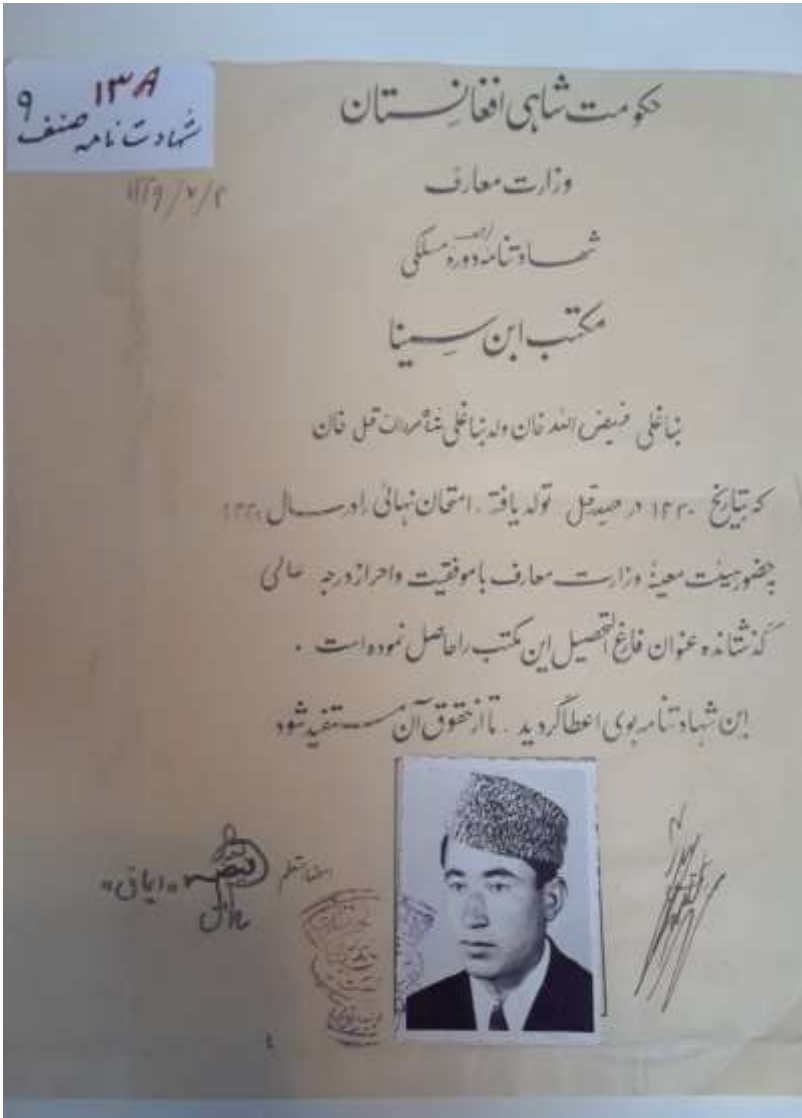 ۱۳۸
شهادت نامه صنف ۹
حکومت شاهی افغانستان
وزارت معارف
شهادتنامه دوره مسلکی
مکتب ابن سینا
ښاغلی فیض الله خان ولد ښاغلی قل خان
که بتاریخ ۱۳۲۰ در تولد یافته . امتحان نهائی را در سال
بحضور هیئت معینهٔ وزارت معارف با موفقیت و احراز درجه عالی
گذشتانده عنوان فارغ التحصیل این مکتب را حاصل نموده است .
این شهادتنامه بوی اعطا گردید . تا از حقوق آن مستفید شود
امضا متعلم
«ایماق»